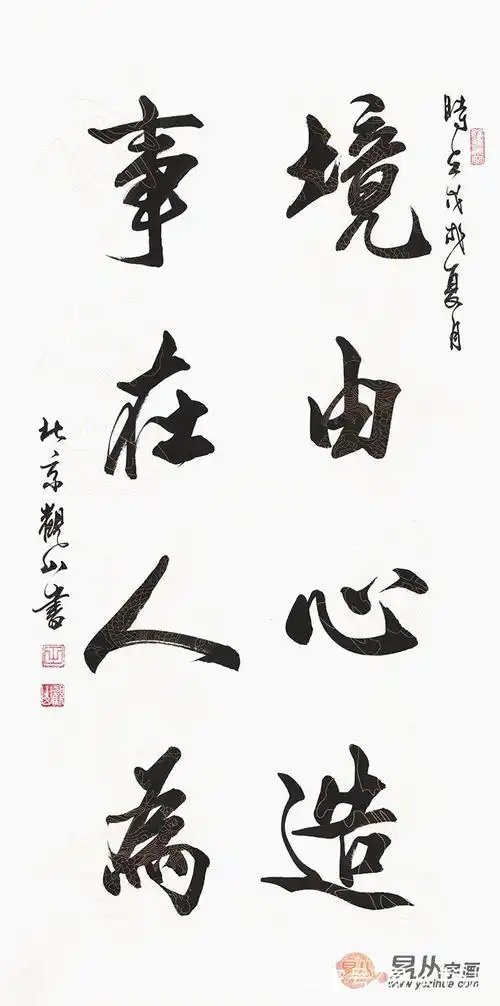 時在戊戌夏月
境由心造
事在人為
北京觀山書
易从字画
www.yozihua.com